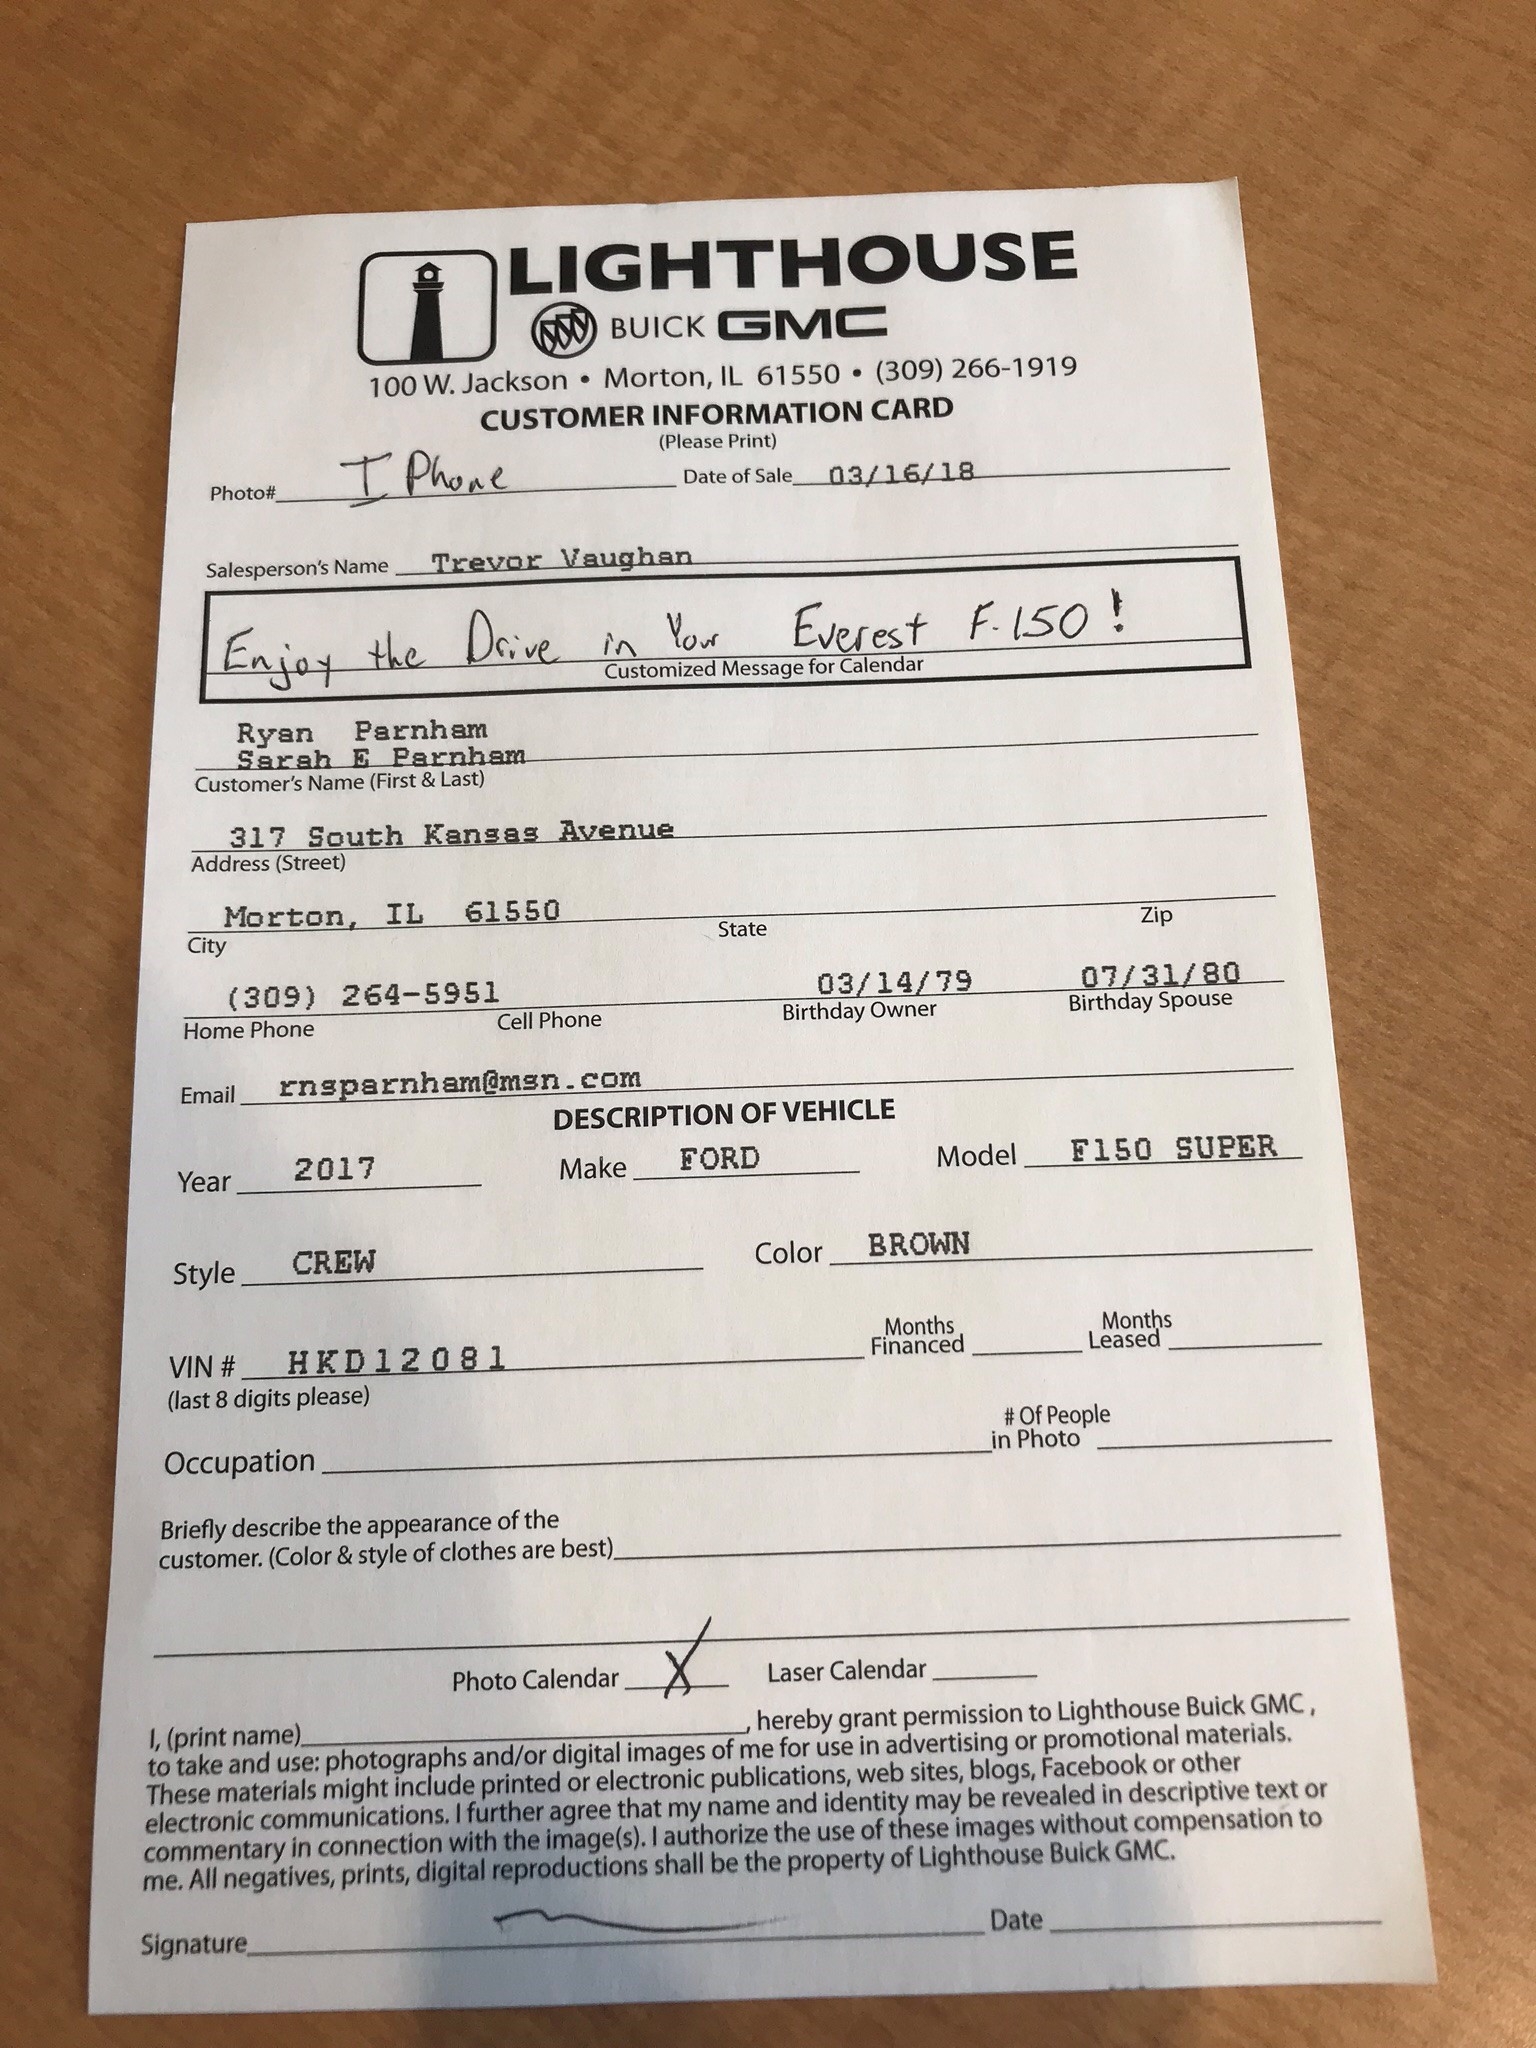 LIGHTHOUSE
BUICK GMC
100 W. Jackson • Morton, IL 61550 • (309) 266-1919
CUSTOMER INFORMATION CARD
(Please Print)
Photo# I Phone Date of Sale 03/16/18
Salesperson's Name Trevor Vaughan
Enjoy the Drive in Your Everest F-150!
Customized Message for Calendar
Ryan Parnham
Sarah E Parnham
Customer's Name (First & Last)
317 South Kansas Avenue
Address (Street)
Morton, IL 61550
City State Zip
(309) 264-5951 03/14/79 07/31/80
Home Phone Cell Phone Birthday Owner Birthday Spouse
Email rnsparnham@msn.com
DESCRIPTION OF VEHICLE
Year 2017 Make FORD Model F150 SUPER
Style CREW Color BROWN
VIN # HKD12081 Months Financed Months Leased
(last 8 digits please)
Occupation # Of People in Photo
Briefly describe the appearance of the
customer. (Color & style of clothes are best)
Photo Calendar X Laser Calendar
I, (print name) , hereby grant permission to Lighthouse Buick GMC ,
to take and use: photographs and/or digital images of me for use in advertising or promotional materials.
These materials might include printed or electronic publications, web sites, blogs, Facebook or other
electronic communications. I further agree that my name and identity may be revealed in descriptive text or
commentary in connection with the image(s). I authorize the use of these images without compensation to
me. All negatives, prints, digital reproductions shall be the property of Lighthouse Buick GMC.
Signature Date